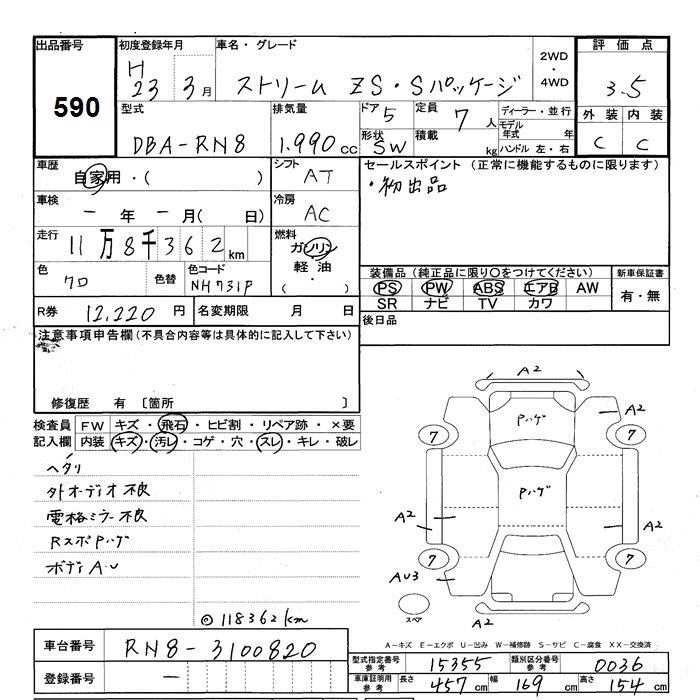 出品番号 初度登録年月 車名・グレード 評価点
590
H 23 3月 ストリーム ZS・Sパッケージ 2WD・4WD 3.5
型式 排気量 ドア 5 定員 7人 ディーラー・並行 外装 内装
DBA-RN8 1.990cc 形状 SW 積載 kg モデル年式 年 ハンドル 左・右 C C
車歴 自家用・( ) シフト AT セールスポイント (正常に機能するものに限ります)
・初出品
車検 ー年ー月( 日) 冷房 AC
走行 11万8千362km 燃料 ガソリン
軽油・( )
色 クロ 色替 色コード NH731P 装備品 (純正品に限り○をつけてください) 新車保証書
PS PW ABS エアB AW 有・無
SR ナビ TV カワ
R券 12,220円 名変期限 月 日 後日品
注意事項申告欄 (不具合内容等は具体的に記入して下さい)
修復歴 有 〔箇所 〕
検査員 FW キズ・飛石・ヒビ割・リペア跡・×要
記入欄 内装 キズ・汚レ・コゲ・穴・スレ・キレ・破レ
ヘタリ
外オーディオ不良
電格ミラー不良
RスポPハゲ
ボディAU
◎118362km
A2
Pハゲ
A2
7 7
Pハゲ
A2 A2
7 7
AU3
スペア
A2
A-キズ E-エクボ U-凹み W-補修跡 S-サビ C-腐食 XX-交換済
車台番号 RN8-3100820
型式指定番号 参考 15355 類別区分番号 参考 0036
登録番号 ー
車庫証明用 参考 長さ 457cm 幅 169cm 高さ 154cm